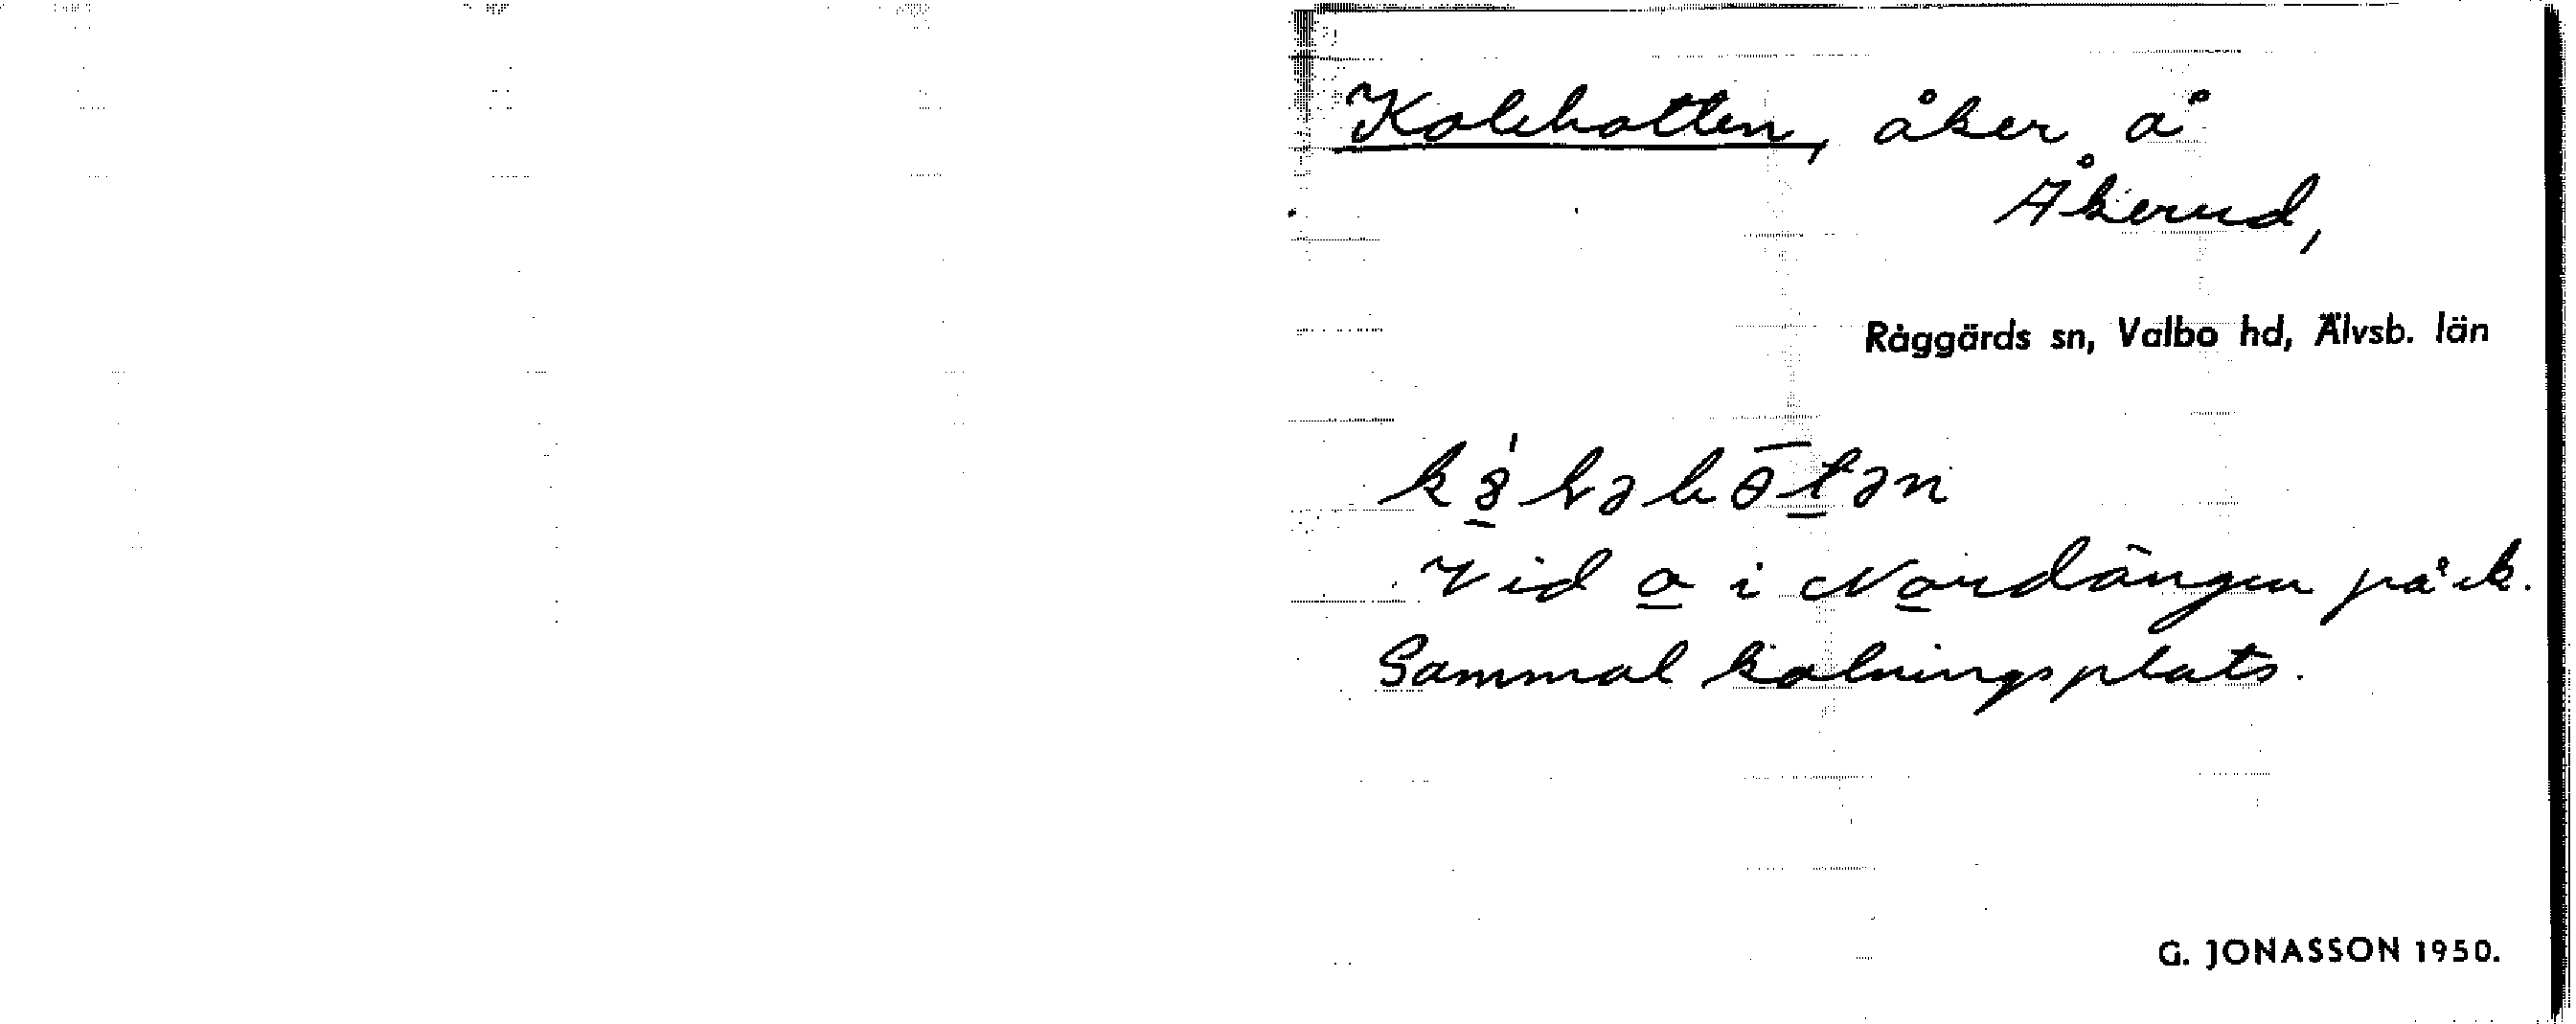 Kolebotten, åker å
Åkerud,
Råggärds sn, Valbo hd, Älvsb. län
Vid o i Nordängen på ek.
Gammal kolningsplats.
G. JONASSON 1950.